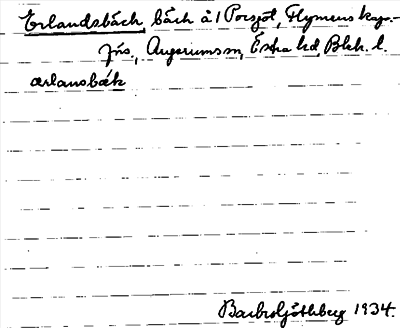 Erlandsbäck, bäck å 1 Porsjöt, Flymens kap.-
förs., Augerums sn, Östra hd, Blek. l.
ærlansbæk
Barbro Göthberg 1934.